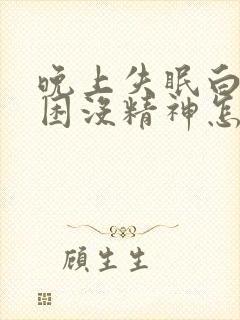 晚上失眠白
困没精神怎
顾生生